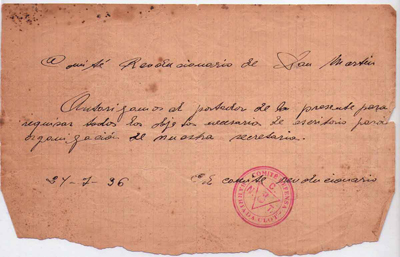 Comité Revolucionario de San Martin
Autorizamos al portador de la presente para
requisar todos los objetos necesarios de escritorio para
organización de nuestra secretaria.
24-7-36 El comité revolucionario
COMITÉ